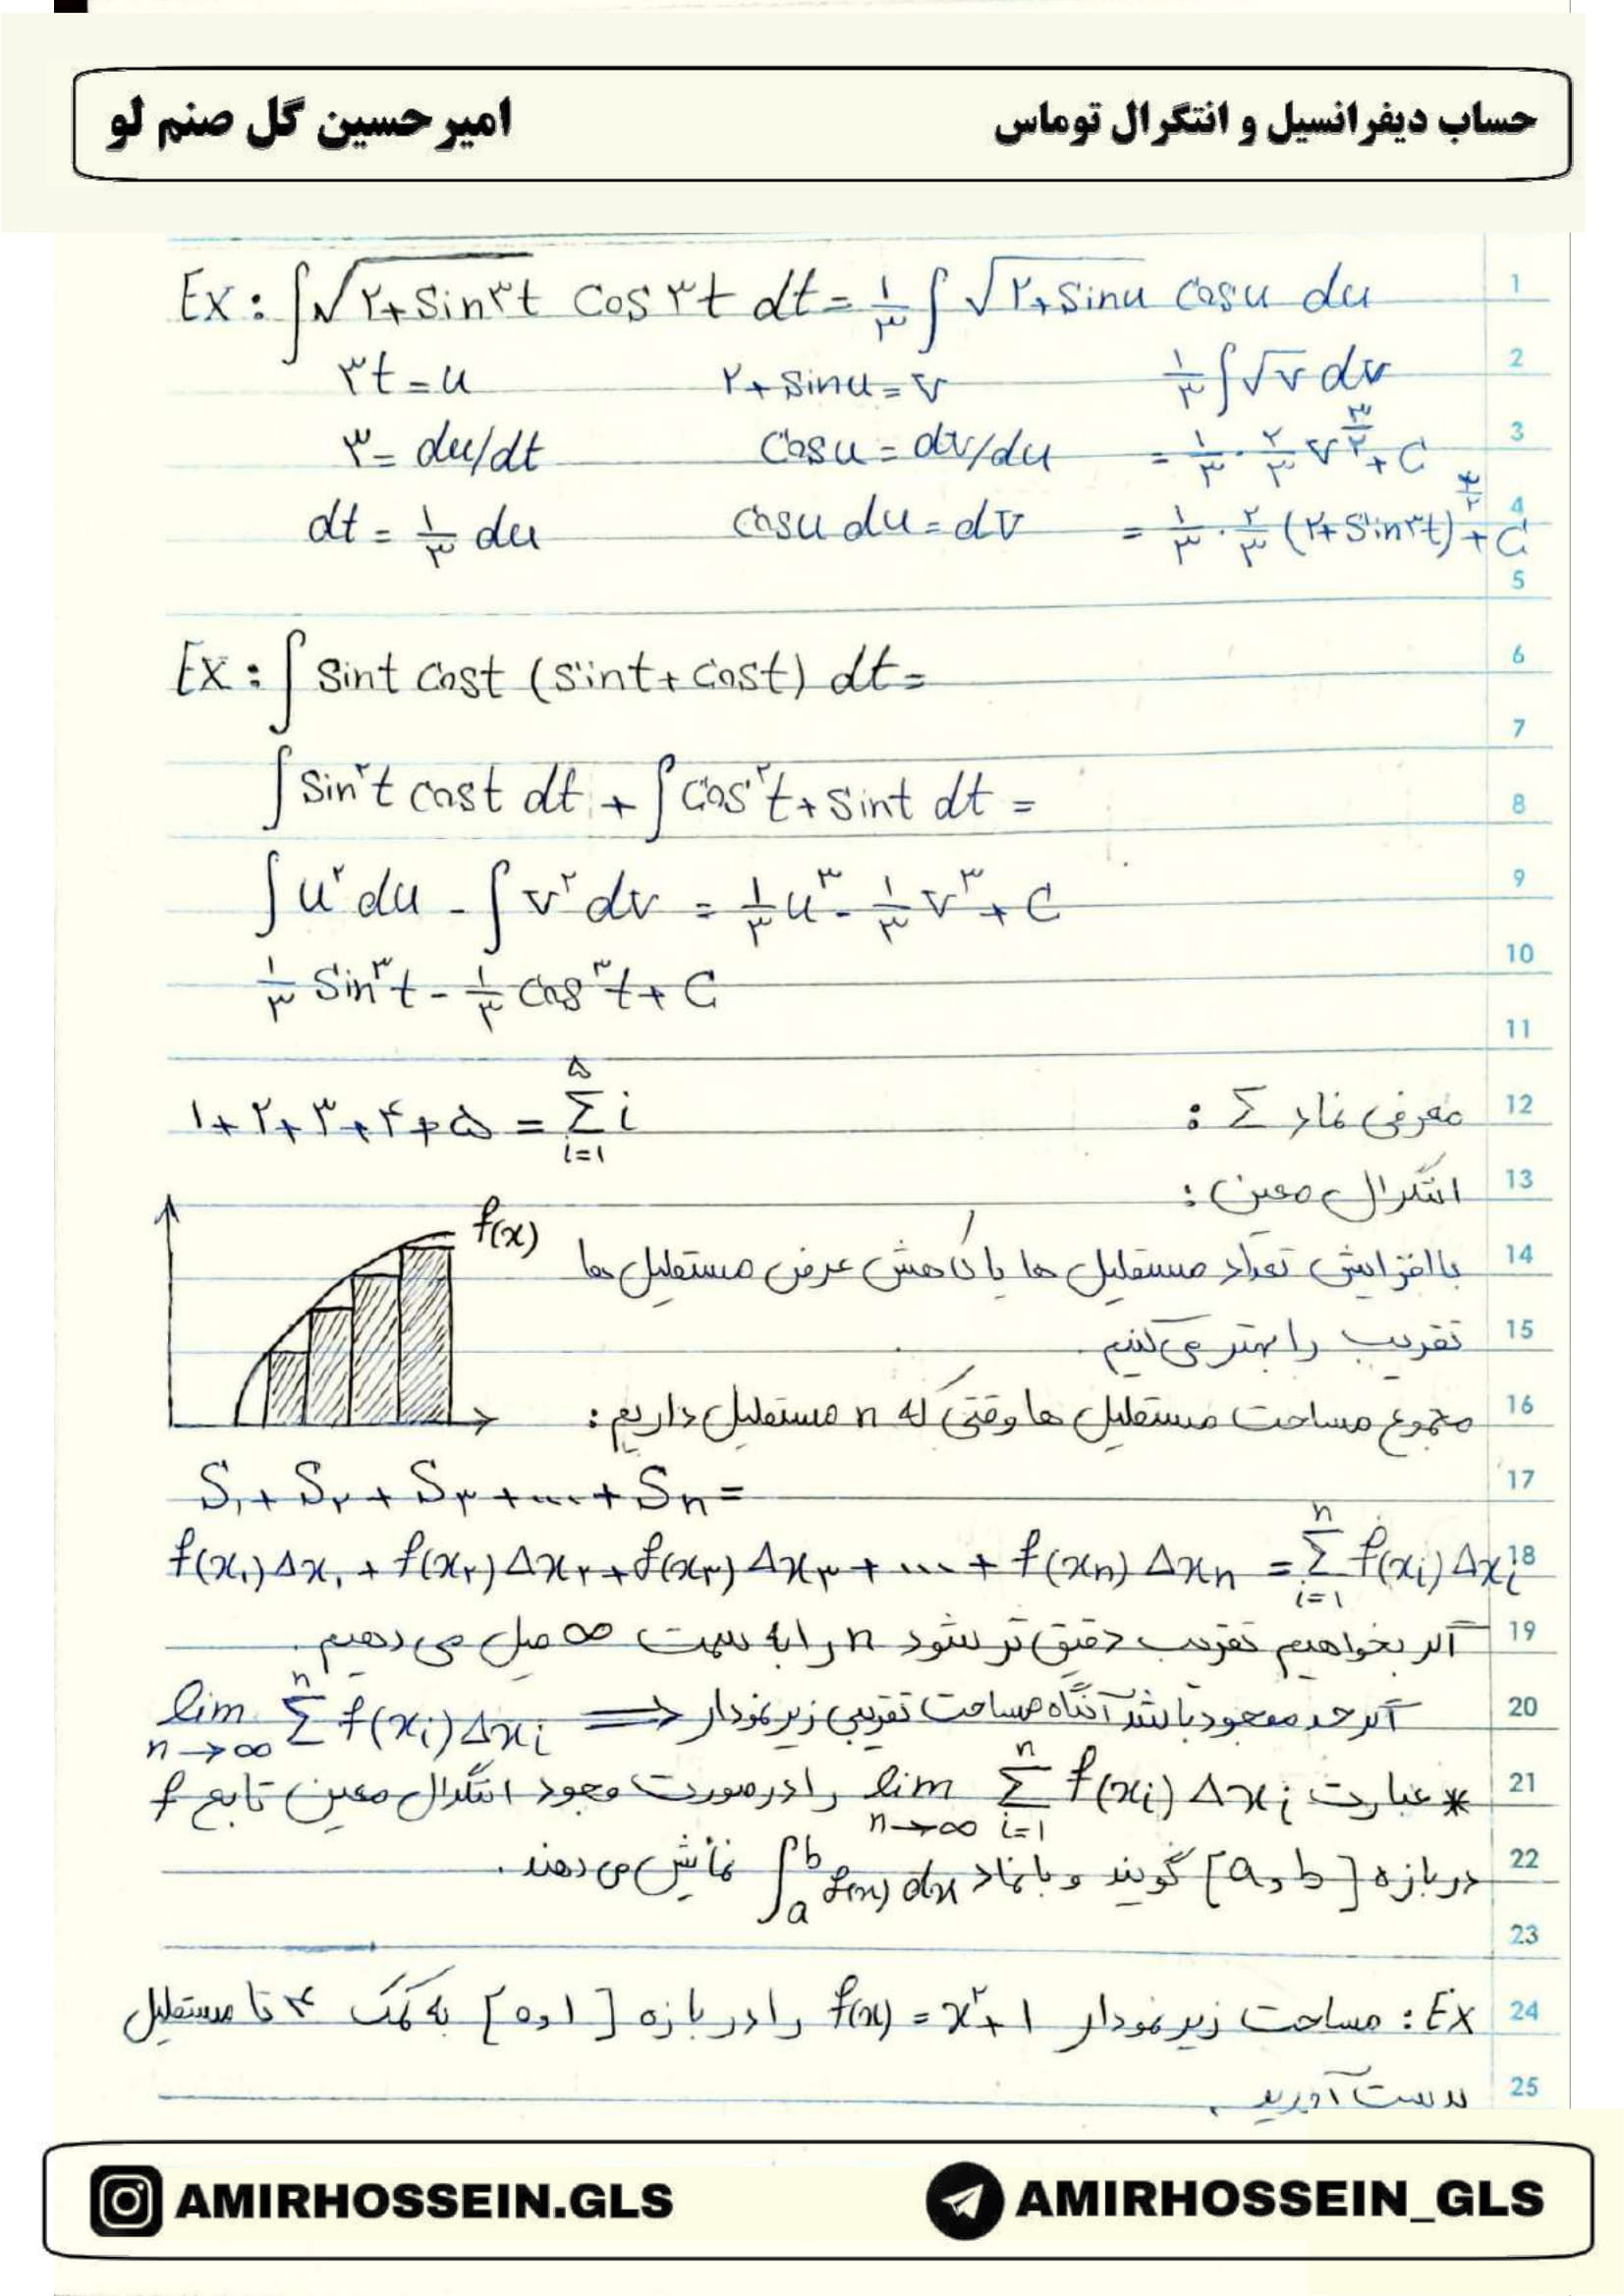 حساب دیفرانسیل و انتگرال توماس امیرحسین گل صنم لو
Ex: ∫√(۲+sin۳t) cos۳t dt = ۱/۳ ∫ √(۲+sinu) cosu du
۳t = u ۲+sinu = v ۱/۳ ∫√v dv
۳ = du/dt cosu = dv/du = ۱/۳ · ۲/۳ v^(۳/۲) + C
dt = ۱/۳ du cosu du = dv = ۱/۳ · ۲/۳ (۲+sin۳t)^(۳/۲) + C
Ex: ∫ sint cost (sint + cost) dt =
∫ sin²t cost dt + ∫ cos²t + sint dt =
∫ u² du - ∫ v² dv = ۱/۳ u³ - ۱/۳ v³ + C
۱/۳ sin³t - ۱/۳ cos³t + C
معرفی نماد Σ : ۱+۲+۳+۴+۵ = Σ_{i=۱}^{۵} i
انتگرال معین :
f(x)
با افزایش تعداد مستطیل ها یا کاهش عرض مستطیل ها
تقریب را بهتر می کنیم.
مجموع مساحت مستطیل ها وقتی که n مستطیل داریم :
S₁ + S₂ + S₃ + ... + Sₙ =
f(x₁)Δx₁ + f(x₂)Δx₂ + f(x₃)Δx₃ + ... + f(xₙ)Δxₙ = Σ_{i=۱}^{n} f(xᵢ)Δxᵢ
اگر بخواهیم تقریب دقیق تر شود n را به سمت ∞ میل می دهیم.
اگر حد موجود باشد آنگاه مساحت تقریبی زیر نمودار ⇐ lim_{n→∞} Σ^{n} f(xᵢ)Δxᵢ
* عبارت lim_{n→∞} Σ_{i=۱}^{n} f(xᵢ)Δxᵢ را در صورت وجود انتگرال معین تابع f
در بازه [a,b] گویند و با نماد ∫_a^b f(x) dx نمایش می دهند.
Ex: مساحت زیر نمودار f(x) = x²+۱ را در بازه [۰,۱] به کمک ۴ تا مستطیل
بدست آورید.
1
2
3
4
5
6
7
8
9
10
11
12
13
14
15
16
17
18
19
20
21
22
23
24
25
AMIRHOSSEIN.GLS AMIRHOSSEIN_GLS